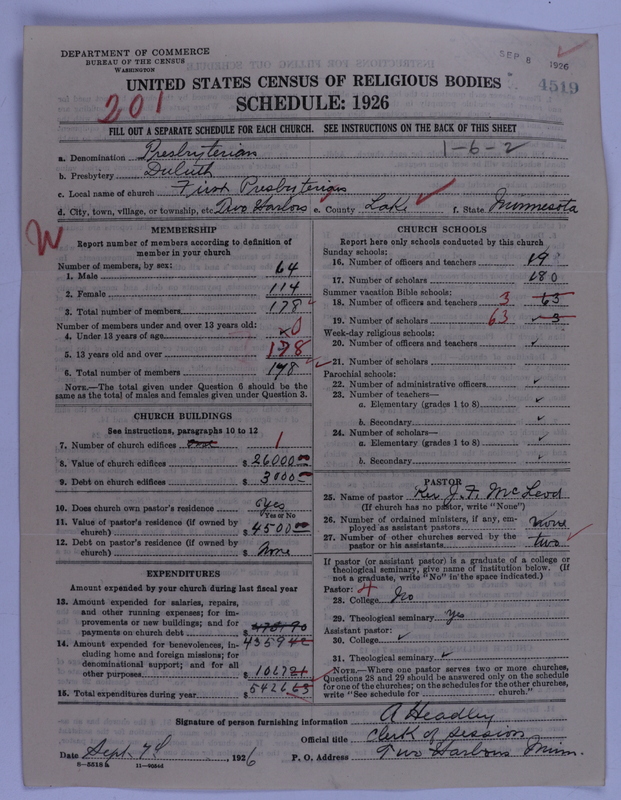 DEPARTMENT OF COMMERCE
BUREAU OF THE CENSUS
WASHINGTON
SEP 8 1926
4519
UNITED STATES CENSUS OF RELIGIOUS BODIES
201
SCHEDULE: 1926
FILL OUT A SEPARATE SCHEDULE FOR EACH CHURCH. SEE INSTRUCTIONS ON THE BACK OF THIS SHEET
1-6-2
a. Denomination Presbyterian
b. Presbytery Duluth
c. Local name of church First Presbyterian
d. City, town, village, or township, etc. Two Harbors e. County Lake f. State Minnesota
W
MEMBERSHIP
Report number of members according to definition of
member in your church
Number of members, by sex:
1. Male 64
2. Female 114
3. Total number of members 178
Number of members under and over 13 years old:
4. Under 13 years of age 0
5. 13 years old and over 178
6. Total number of members 178
NOTE.—The total given under Question 6 should be the
same as the total of males and females given under Question 3.
CHURCH BUILDINGS
See instructions, paragraphs 10 to 12
7. Number of church edifices 1
8. Value of church edifices $ 26000 00
9. Debt on church edifices $ 3000
10. Does church own pastor's residence Yes
Yes or No
11. Value of pastor's residence (if owned by
church) $ 4500 00
12. Debt on pastor's residence (if owned by
church) $ None
EXPENDITURES
Amount expended by your church during last fiscal year
13. Amount expended for salaries, repairs,
and other running expenses; for im-
provements or new buildings; and for
payments on church debt $
4359 42
14. Amount expended for benevolences, in-
cluding home and foreign missions; for
denominational support; and for all
other purposes $ 1067 21
15. Total expenditures during year $ 5426 63
CHURCH SCHOOLS
Report here only schools conducted by this church
Sunday schools:
16. Number of officers and teachers 19
17. Number of scholars 180
Summer vacation Bible schools:
18. Number of officers and teachers 3 63
19. Number of scholars 63 3
Week-day religious schools:
20. Number of officers and teachers
21. Number of scholars
Parochial schools:
22. Number of administrative officers
23. Number of teachers—
a. Elementary (grades 1 to 8)
b. Secondary
24. Number of scholars—
a. Elementary (grades 1 to 8)
b. Secondary
PASTOR
25. Name of pastor Rev. J. F. McLeod
(If church has no pastor, write "None")
26. Number of ordained ministers, if any, em-
ployed as assistant pastors none
27. Number of other churches served by the
pastor or his assistants two
If pastor (or assistant pastor) is a graduate of a college or
theological seminary, give name of institution below. (If
not a graduate, write "No" in the space indicated.)
Pastor: 4
28. College No
29. Theological seminary Yes
Assistant pastor:
30. College
31. Theological seminary
NOTE.—Where one pastor serves two or more churches,
Questions 28 and 29 should be answered only on the schedule
for one of the churches; on the schedules for the other churches,
write "See schedule for church."
Signature of person furnishing information A Headley
Official title Clerk of Session
Date Sept. 7th, 1926 P. O. Address Two Harbors Minn.
8-5518a 11-9054d